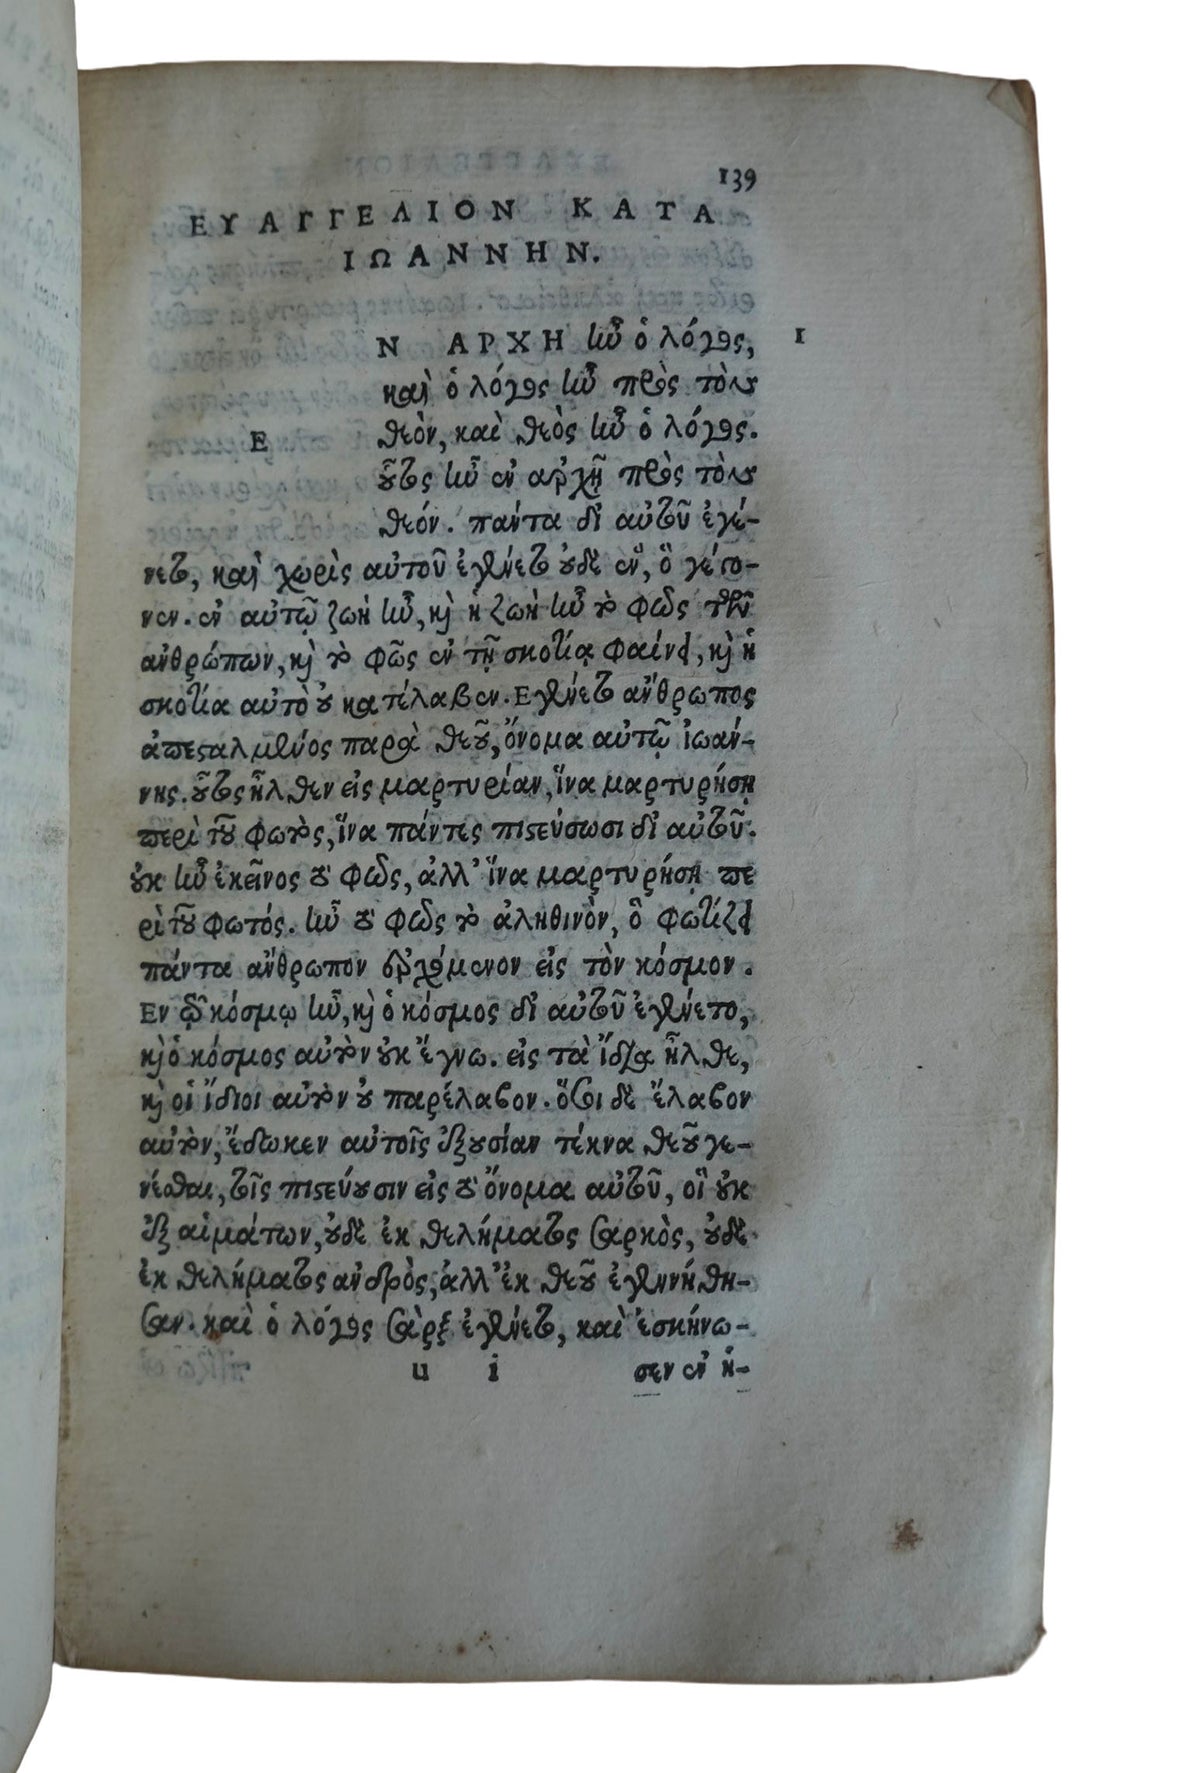 139
ΕΥΑΓΓΕΛΙΟΝ ΚΑΤΑ
ΙΩΑΝΝΗΝ.
Ν ΑΡΧΗ ἦν ὁ λόγος, 1
καὶ ὁ λόγος ἦν πρὸς τὸν
Ε θεὸν, καὶ θεὸς ἦν ὁ λόγος.
οὗτος ἦν ἐν ἀρχῇ πρὸς τὸν
θεόν. πάντα δι αὐτοῦ ἐγέ-
νετο, καὶ χωρὶς αὐτοῦ ἐγένετο οὐδὲ ἕν, ὃ γέγο-
νεν. ἐν αὐτῷ ζωὴ ἦν, καὶ ἡ ζωὴ ἦν τὸ φῶς τῶν
ἀνθρώπων, καὶ τὸ φῶς ἐν τῇ σκοτίᾳ φαίνει, καὶ ἡ
σκοτία αὐτὸ οὐ κατέλαβεν. Εγένετο ἄνθρωπος
ἀπεσταλμένος παρὰ θεοῦ, ὄνομα αὐτῷ ἰωάν-
νης. οὗτος ἦλθεν εἰς μαρτυρίαν, ἵνα μαρτυρήσῃ
περὶ τοῦ φωτὸς, ἵνα πάντες πιστεύσωσι δι αὐτοῦ.
οὐκ ἦν ἐκεῖνος τὸ φῶς, ἀλλ' ἵνα μαρτυρήσῃ πε
ρὶ τοῦ φωτός. ἦν τὸ φῶς τὸ ἀληθινὸν, ὃ φωτίζει
πάντα ἄνθρωπον ἐρχόμενον εἰς τὸν κόσμον.
Εν τῷ κόσμῳ ἦν, καὶ ὁ κόσμος δι αὐτοῦ ἐγένετο,
καὶ ὁ κόσμος αὐτὸν οὐκ ἔγνω. εἰς τὰ ἴδια ἦλθε,
καὶ οἱ ἴδιοι αὐτὸν οὐ παρέλαβον. ὅσοι δὲ ἔλαβον
αὐτὸν, ἔδωκεν αὐτοῖς ἐξουσίαν τέκνα θεοῦ γε-
νέσθαι, τοῖς πιστεύουσιν εἰς τὸ ὄνομα αὐτοῦ, οἳ οὐκ
ἐξ αἱμάτων, οὐδὲ ἐκ θελήματος σαρκὸς, οὐδὲ
ἐκ θελήματος ἀνδρὸς, ἀλλ' ἐκ θεοῦ ἐγεννήθη-
σαν. καὶ ὁ λόγος σὰρξ ἐγένετο, καὶ ἐσκήνω-
u i σεν ἐν ἡ-